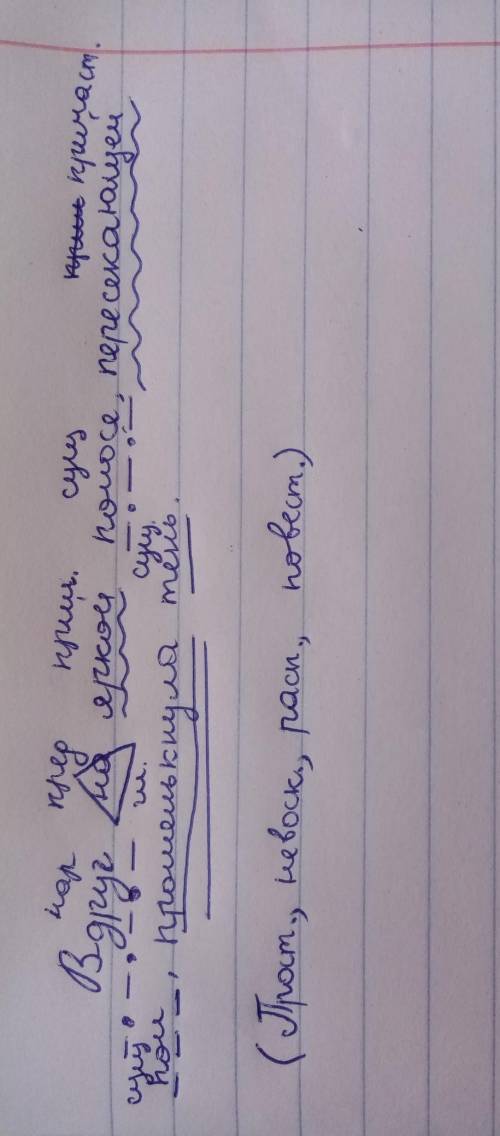 нар пред прил. сущ причаст.
Вдруг на яркой полосе, пересекающей
сущ гл. сущ.
пол, промелькнула тень.
(Прост., невоск., расп., повест.)